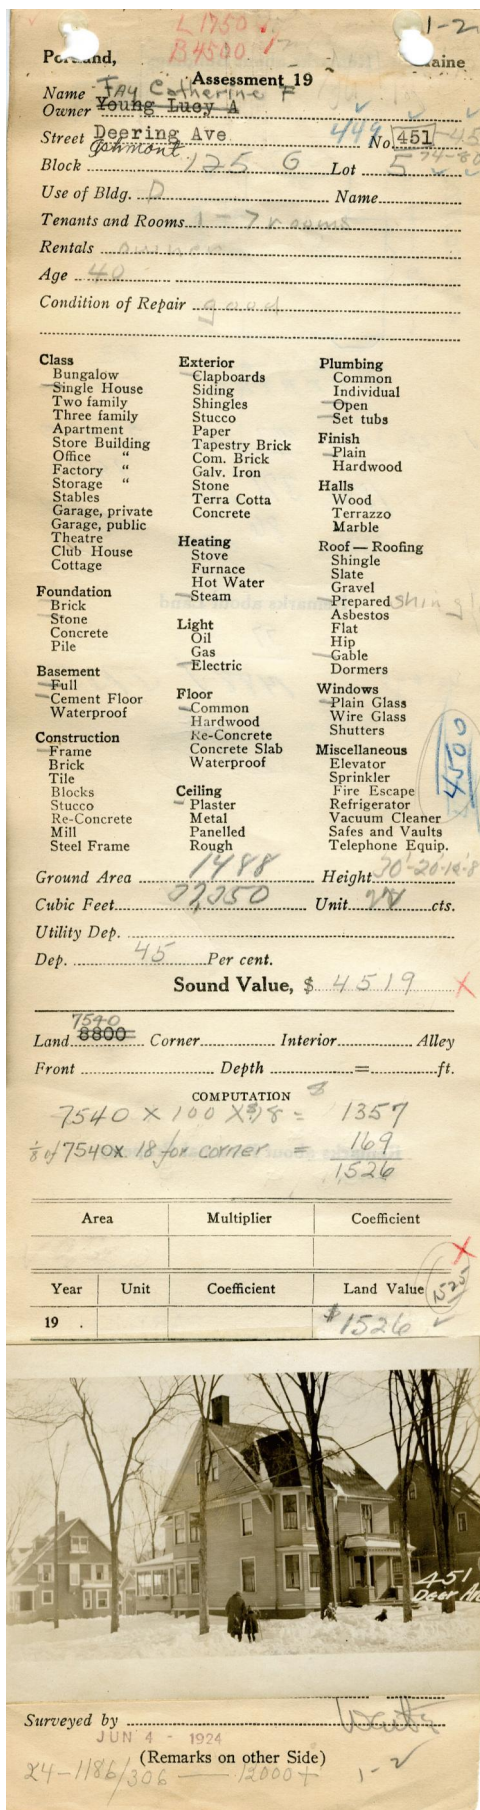 L 1750
B 4500
1-2
Portland, Maine
Assessment 19
Name Fay Catherine F
Owner Young Lucy A
Street Deering Ave 449 No. 451 -45
Ashmont 74-80
Block 125 G Lot 5
Use of Bldg. D Name
Tenants and Rooms 1 - 7 rooms
Rentals owner
Age 40
Condition of Repair good
Class
Bungalow
Single House
Two family
Three family
Apartment
Store Building
Office "
Factory "
Storage "
Stables
Garage, private
Garage, public
Theatre
Club House
Cottage
Foundation
Brick
Stone
Concrete
Pile
Basement
Full
Cement Floor
Waterproof
Construction
Frame
Brick
Tile
Blocks
Stucco
Re-Concrete
Mill
Steel Frame
Exterior
Clapboards
Siding
Shingles
Stucco
Paper
Tapestry Brick
Com. Brick
Galv. Iron
Stone
Terra Cotta
Concrete
Heating
Stove
Furnace
Hot Water
Steam
Light
Oil
Gas
Electric
Floor
Common
Hardwood
Re-Concrete
Concrete Slab
Waterproof
Ceiling
Plaster
Metal
Panelled
Rough
Plumbing
Common
Individual
Open
Set tubs
Finish
Plain
Hardwood
Halls
Wood
Terrazzo
Marble
Roof — Roofing
Shingle
Slate
Gravel
Prepared shingl
Asbestos
Flat
Hip
Gable
Dormers
Windows
Plain Glass
Wire Glass
Shutters
Miscellaneous
Elevator
Sprinkler
Fire Escape
Refrigerator
Vacuum Cleaner
Safes and Vaults
Telephone Equip.
4500
Ground Area 1488 Height 30'-20'-12'-8
Cubic Feet Unit cts.
Utility Dep.
Dep. 45 Per cent.
Sound Value, $ 4519
7540
Land 8800 Corner Interior Alley
Front Depth = ft.
COMPUTATION
7540 X 100 X 18 = 1357
1/8 of 7540 x 18 for corner = 169
1526
Area Multiplier Coefficient
Year Unit Coefficient Land Value 1525
19 . $1526
451
Deer Av
Surveyed by
JUN 4 - 1924
(Remarks on other Side)
24-1186/306 — 12000+ 1-2